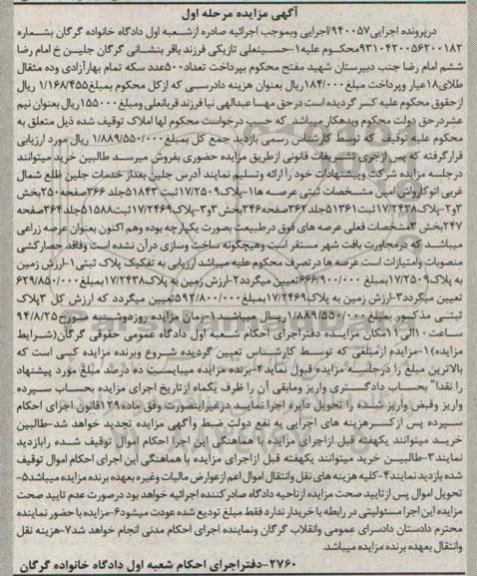 آگهی مزایده مرحله اول
درپرونده اجرایی۹۴۰۰۵۷/اجرایی وبموجب اجرائیه صادره ازشعبه اول دادگاه خانواده گرگان بشماره
۹۳۱۰۴۲۰۰۵۶۲۰۰۱۸۲محکوم علیه۱-حسینعلی تازیکی فرزند باقر بنشانی گرگان جلین خ امام رضا
ششم امام رضا جنب دبیرستان شهید مفتح محکوم بپرداخت تعداد۵۰۰عدد سکه تمام بهارآزادی وده مثقال
طلای۱۸عیار وپرداخت مبلغ۱۸۴/۰۰۰ریال بعنوان هزینه دادرسی که ازکل محکوم بمبلغ۱/۱۶۸/۴۵۵ ریال
ازحقوق محکوم علیه کسر گردیده است درحق مهسا عبدالهی نیا فرزند قربانعلی ومبلغ۱۵۵۰۰۰ریال بعنوان نیم
عشردرحق دولت محکوم وبدهکار میباشد که حسب درخواست محکوم لها املاک توقیف شده ذیل متعلق به
محکوم علیه توقیف که توسط کارشناس رسمی بازدید جمع کل بمبلغ۱/۸۸۹/۵۵۰/۰۰۰ ریال مورد ارزیابی
قرارگرفته که پس ازجری تشریفات قانونی ازطریق مزایده حضوری بفروش میرسد طالبین خرید میتوانند
درجلسه مزایده شرکت وپیشنهادات خود را ارائه وتسلیم نمایند آدرس جلین بعداز خدمات جلین ظلع شمال
غربی اتوکارواش امین مشخصات ثبتی عرصه ها۱-پلاک۱۷/۲۵۰۹ثبت۵۱۸۴۳جلد ۳۶۶صفحه ۲۵۰بخش
۳و۲-پلاک۱۷/۲۴۳۸ثبت۵۱۳۶۱جلد۳۶۲صفحه۳۴۶بخش ۳و۳-پلاک۱۷/۲۴۶۹ثبت۵۱۵۸۸جلد۳۶۴صفحه
۲۴۷بخش ۳مشخصات فعلی عرصه های فوق درطبیعت بصورت یکپارچه بوده وهم اکنون بعنوان عرصه زراعی
میباشد که درمجاورت بافت شهر مستقر است وهیچگونه ساخت وسازی درآن نشده است وفاقد حصارکشی
منصوبات وامتیازات است عرصه ها در تصرف محکوم علیه میباشد ارزیابی به تفکیک پلاک ثبتی۱-ارزش زمین
به پلاک۱۷/۲۵۰۹بمبلغ ۶۶۶/۹۰۰/۰۰۰تعیین میگردد۲-ارزش زمین به پلاک۱۷/۲۴۳۸بمبلغ۶۲۹/۸۵۰/۰۰۰
تعیین میگردد۳-ارزش زمین به پلاک۱۷/۲۴۶۹بمبلغ۵۹۲/۸۰۰/۰۰۰تعیین میگردد که ارزش کل ۳پلاک
ثبتی مذکور بمبلغ ۱/۸۸۹/۵۵۰/۰۰۰ریال میباشد۱-زمان مزایده روزدوشنبه مورخ۹۴/۸/۲۵
ساعت۱۰الی۱۱مکان مزایده دفتراجرای احکام شعبه اول دادگاه عمومی حقوقی گرگان(شرایط
مزایده)۱-مزایده ازمبلغی که توسط کارشناس تعیین گردیده شروع وبرنده مزایده کسی است که
بالاترین مبلغ را درجلسه مزایده قبول نماید۲-برنده مزایده میبایست ده درصد مبلغ مورد پیشنهاد
را نقدا" بحساب دادگستری واریز ومابقی آن را ظرف یکماه ازتاریخ اجرای مزایده بحساب سپرده
واریز وقبض واریز شده را تحویل دایره اجرا نمایید درغیراینصورت وفق ماده۱۲۹قانون اجرای احکام
سپرده پس ازکسرهزینه های اجرایی به نفع دولت ضبط وآگهی مزایده تجدید خواهد شد-طالبین
خرید میتوانند یکهفته قبل ازاجرای مزایده با هماهنگی این اجرا احکام اموال توقیف شده رابازدید
نمایند۳-طالبین خرید میتوانند یکهفته قبل ازاجرای مزایده با هماهنگی این اجرای احکام اموال توقیف
شده بازدید نمایند۴-کلیه هزینه های نقل وانتقال اموال اعم ازعوارض مالیات وغیره بعهده برنده مزایده میباشد۵-
تحویل اموال پس ازتایید صحت مزایده ازناحیه دادگاه صادرکننده اجرائیه خواهد بود درصورت عدم تایید صحت
مزایده این اجرا مسئولیتی در رابطه با خریدار ندارد فقط مبلغ تودیع شده عودت میشود۶-مزایده با حضور نماینده
محترم دادستان دادسرای عمومی وانقلاب گرگان ونماینده اجرای احکام مدنی انجام خواهد شد۷-هزینه نقل
وانتقال بعهده برنده مزایده میباشد.
۲۷۶۰-دفتراجرای احکام شعبه اول دادگاه خانواده گرگان